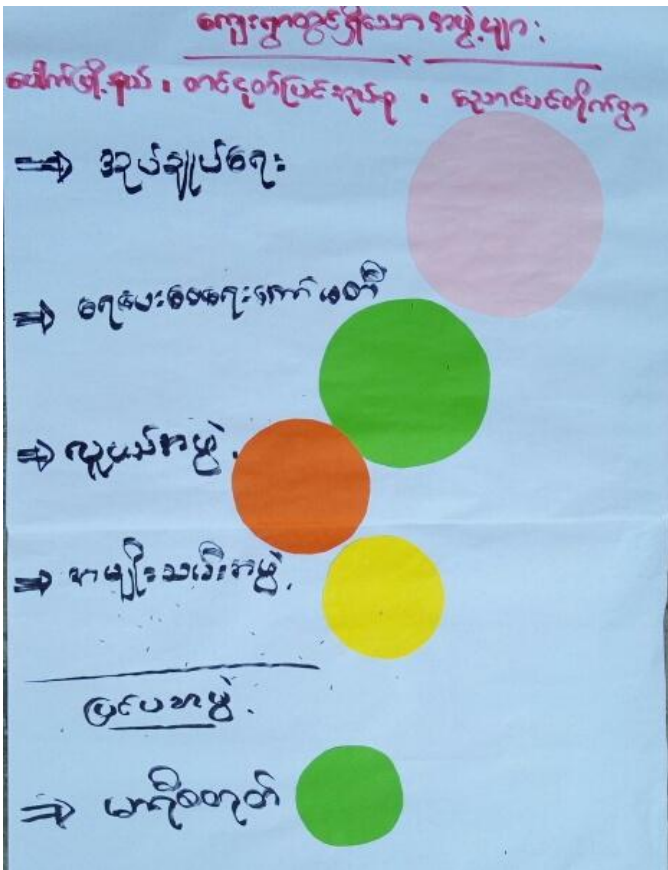 ကျေးရွာတွင်ရှိသော အဖွဲ့များ
ပေါက်မြို့နယ် ၊ တင်ငုတ်ပြင်အုပ်စု ၊ ညောင်ပင်တိုက်ရွာ
⇒ အုပ်ချုပ်ရေး
⇒ ရေပေးဝေရေးကော်မတီ
⇒ လူမှုအဖွဲ့
⇒ အမျိုးသမီးအဖွဲ့
ပြင်ပအဖွဲ့
⇒ မာရီစတုတ်